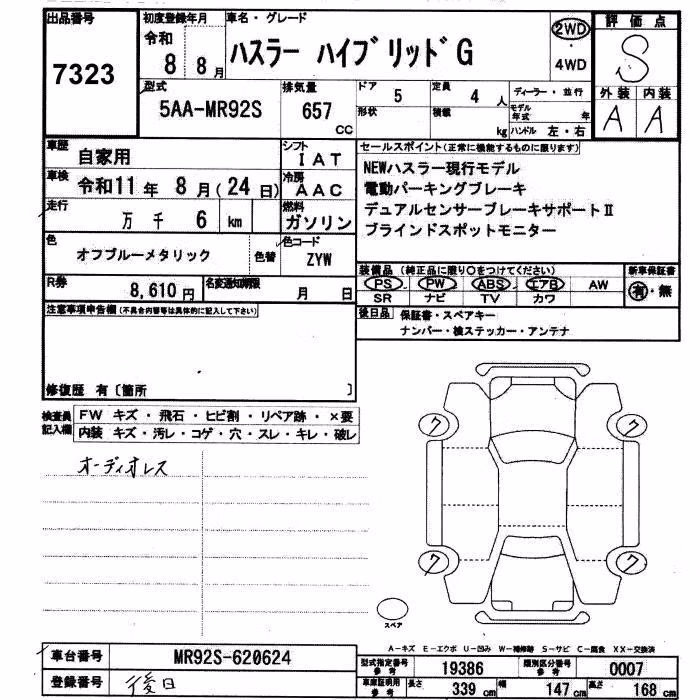 出品番号 初度登録年月 車名・グレード 2WD 評価点
7323 令和 8 8月 ハスラー ハイブリッドG 4WD S
型式 排気量 ドア 5 定員 4人 ディーラー・並行 外装 内装
5AA-MR92S 657 cc 形状 積載 kg モデル年式 年 ハンドル 左・右 A A
車歴 自家用 シフト IAT セールスポイント(正常に機能するものに限ります)
車検 令和11年 8月(24日) 冷房 AAC NEWハスラー現行モデル
電動パーキングブレーキ
走行 万 千 6 km 燃料 ガソリン デュアルセンサーブレーキサポートⅡ
ブラインドスポットモニター
色 オフブルーメタリック 色替 色コード ZYW
装備品(純正品に限り○をつけてください) 新車保証書
R券 8,610円 名変通知期限 月 日 PS PW ABS エアB AW 有・無
SR ナビ TV カワ
注意事項申告欄(不具合内容等は具体的に記入して下さい) 後日品 保証書・スペアキー
ナンバー・検ステッカー・アンテナ
修復歴 有〔箇所 〕
検査員記入欄 FW キズ・飛石・ヒビ割・リペア跡・×要
内装 キズ・汚レ・コゲ・穴・スレ・キレ・破レ
オーディオレス
ク ク
ク ク
スペア
A-キズ E-エクボ U-凹み W-補修跡 S-サビ C-腐食 XX-交換済
車台番号 MR92S-620624 型式指定番号 参考 19386 類別区分番号 参考 0007
登録番号 後日 車庫証明用 参考 長さ 339 cm 幅 147 cm 高さ 168 cm